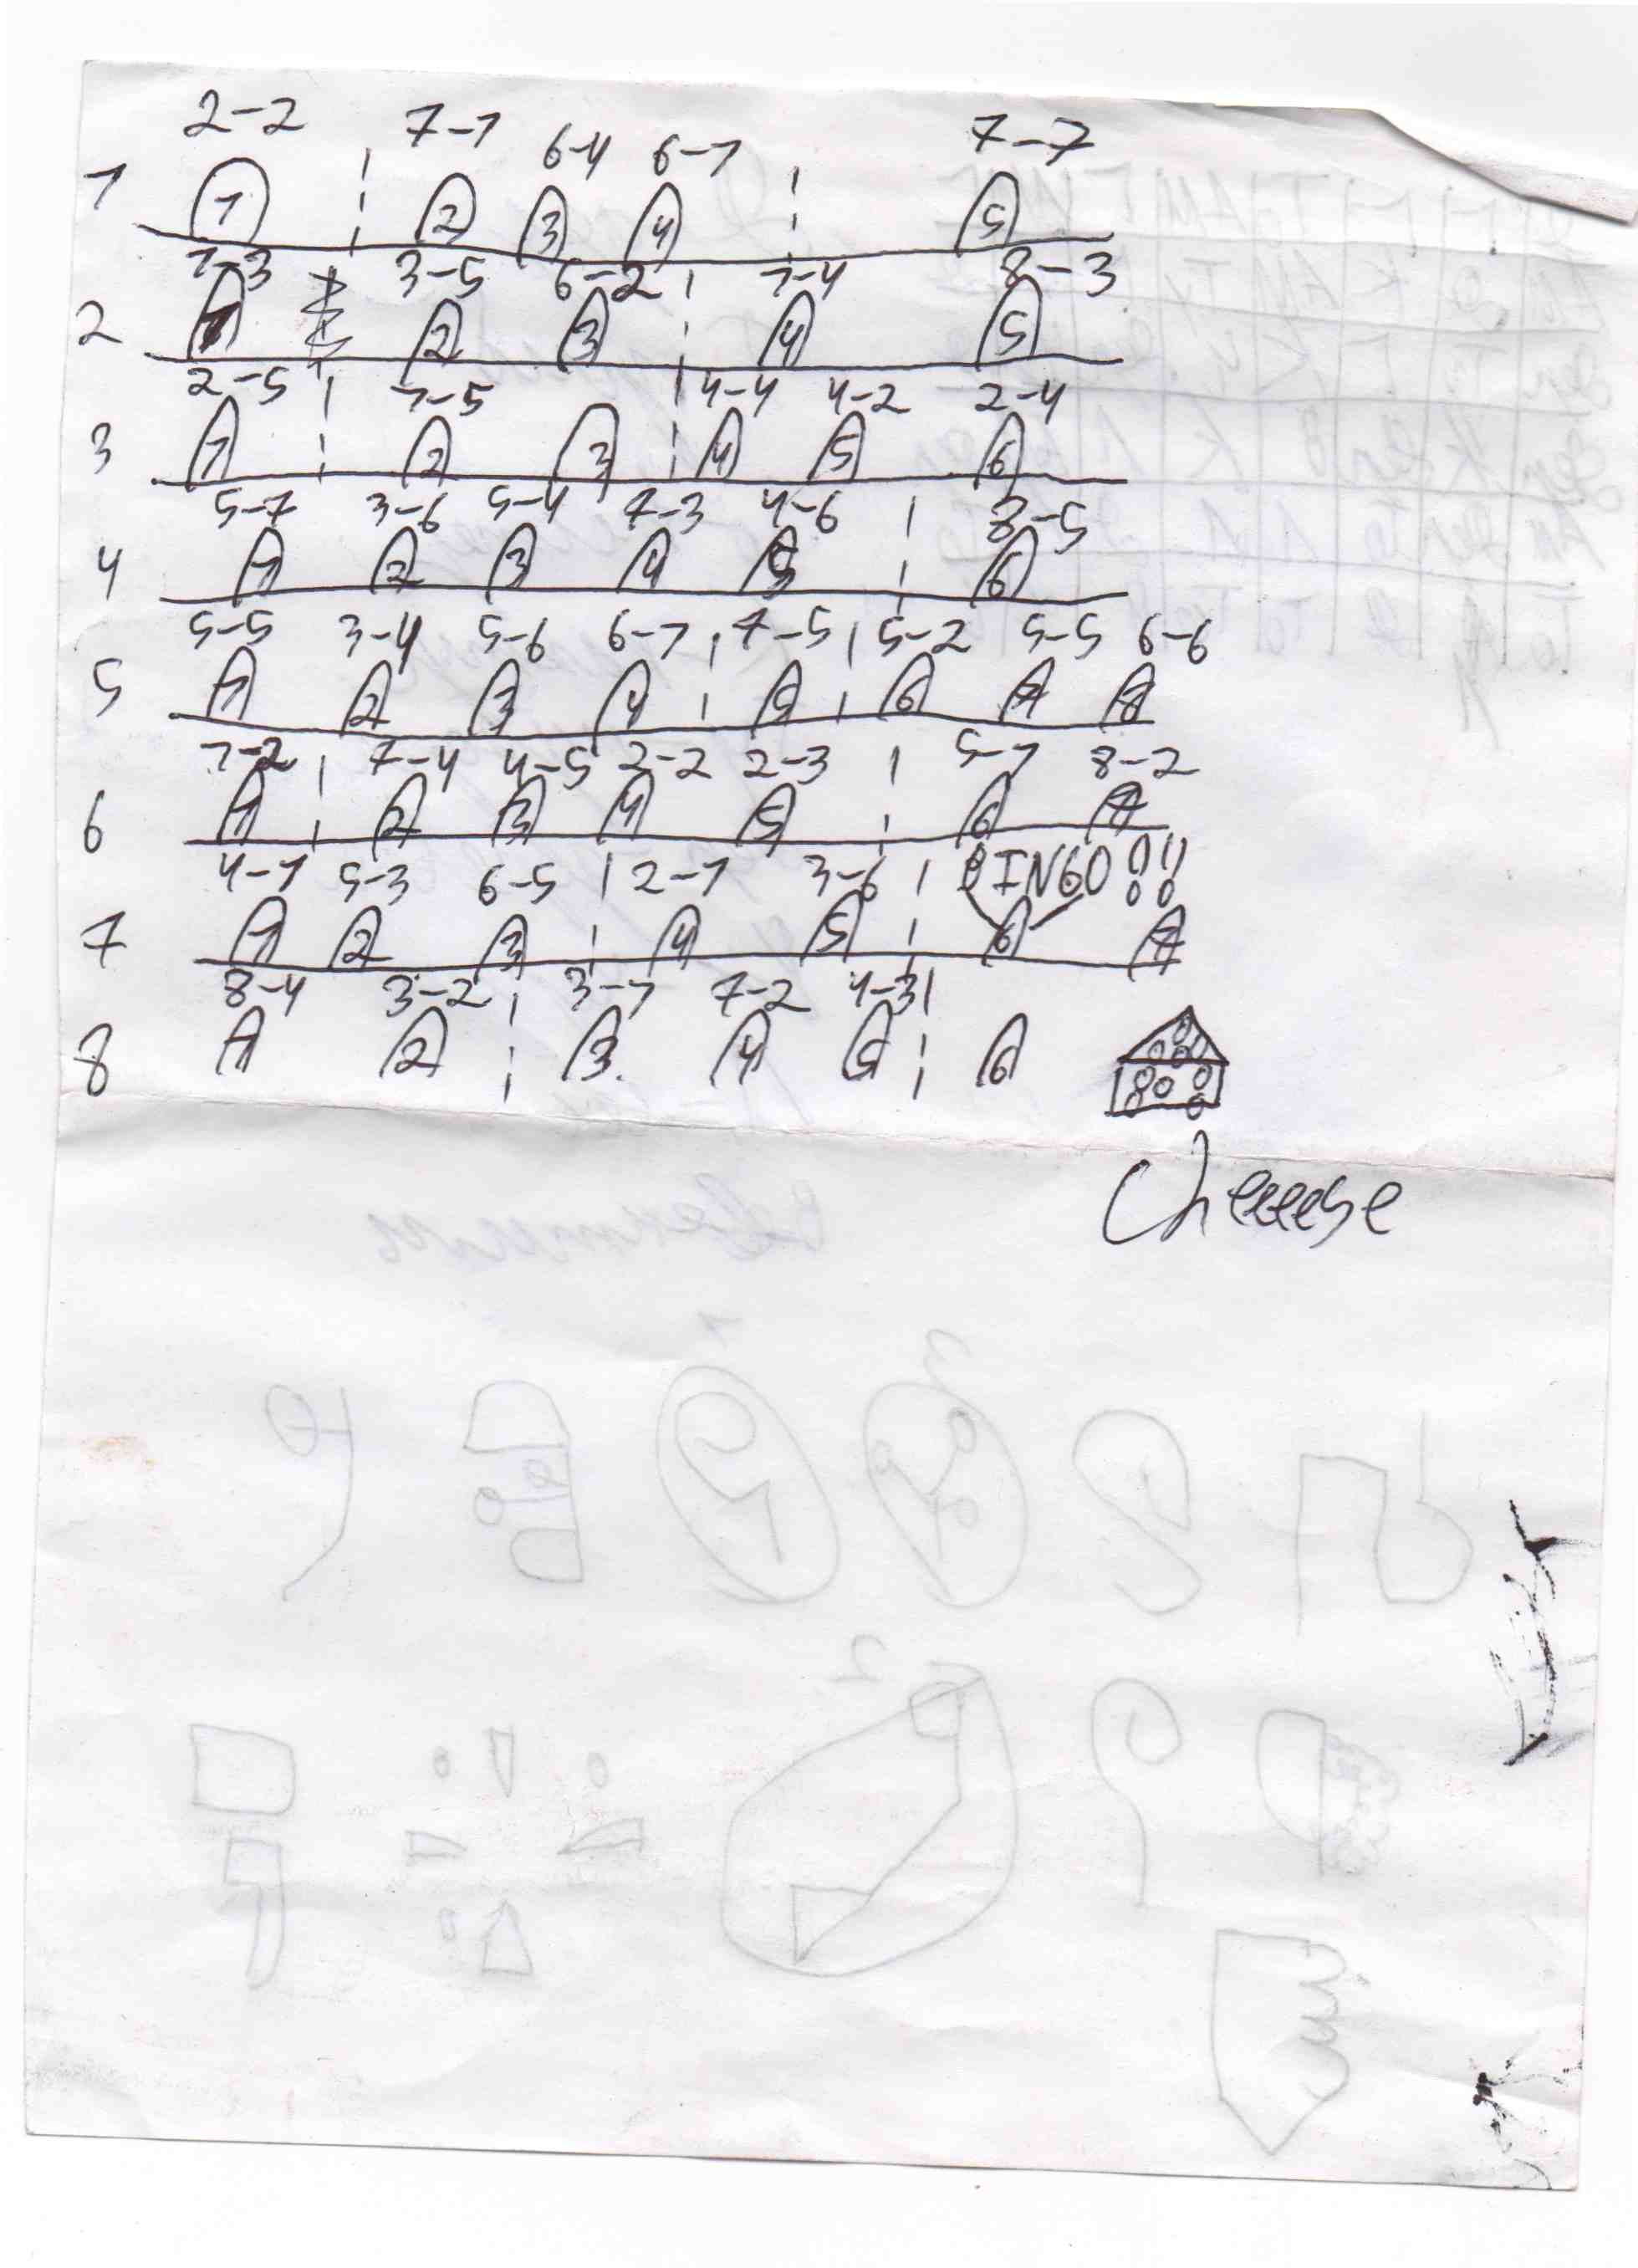 2-2 7-1 6-4 6-1 7-7
1 1 2 3 4 5
1-3 3-5 6-2 1-4 8-3
2 1 2 3 4 5
2-5 1-5 4-4 4-2 2-4
3 1 2 3 4 5 6
5-7 3-6 5-4 7-3 4-6 8-5
4 1 2 3 4 5 6
5-5 3-4 5-6 6-1 7-5 5-2 5-5 6-6
5 1 2 3 4 5 6 7 8
1-2 7-4 4-5 2-2 2-3 5-1 8-2
6 1 2 3 4 5 6 7
4-1 5-3 6-5 2-1 3-6 BINGO!!
7 1 2 3 4 5 6 7
8-4 3-2 3-1 7-2 4-3
8 1 2 3 4 5 6
Cheeeese